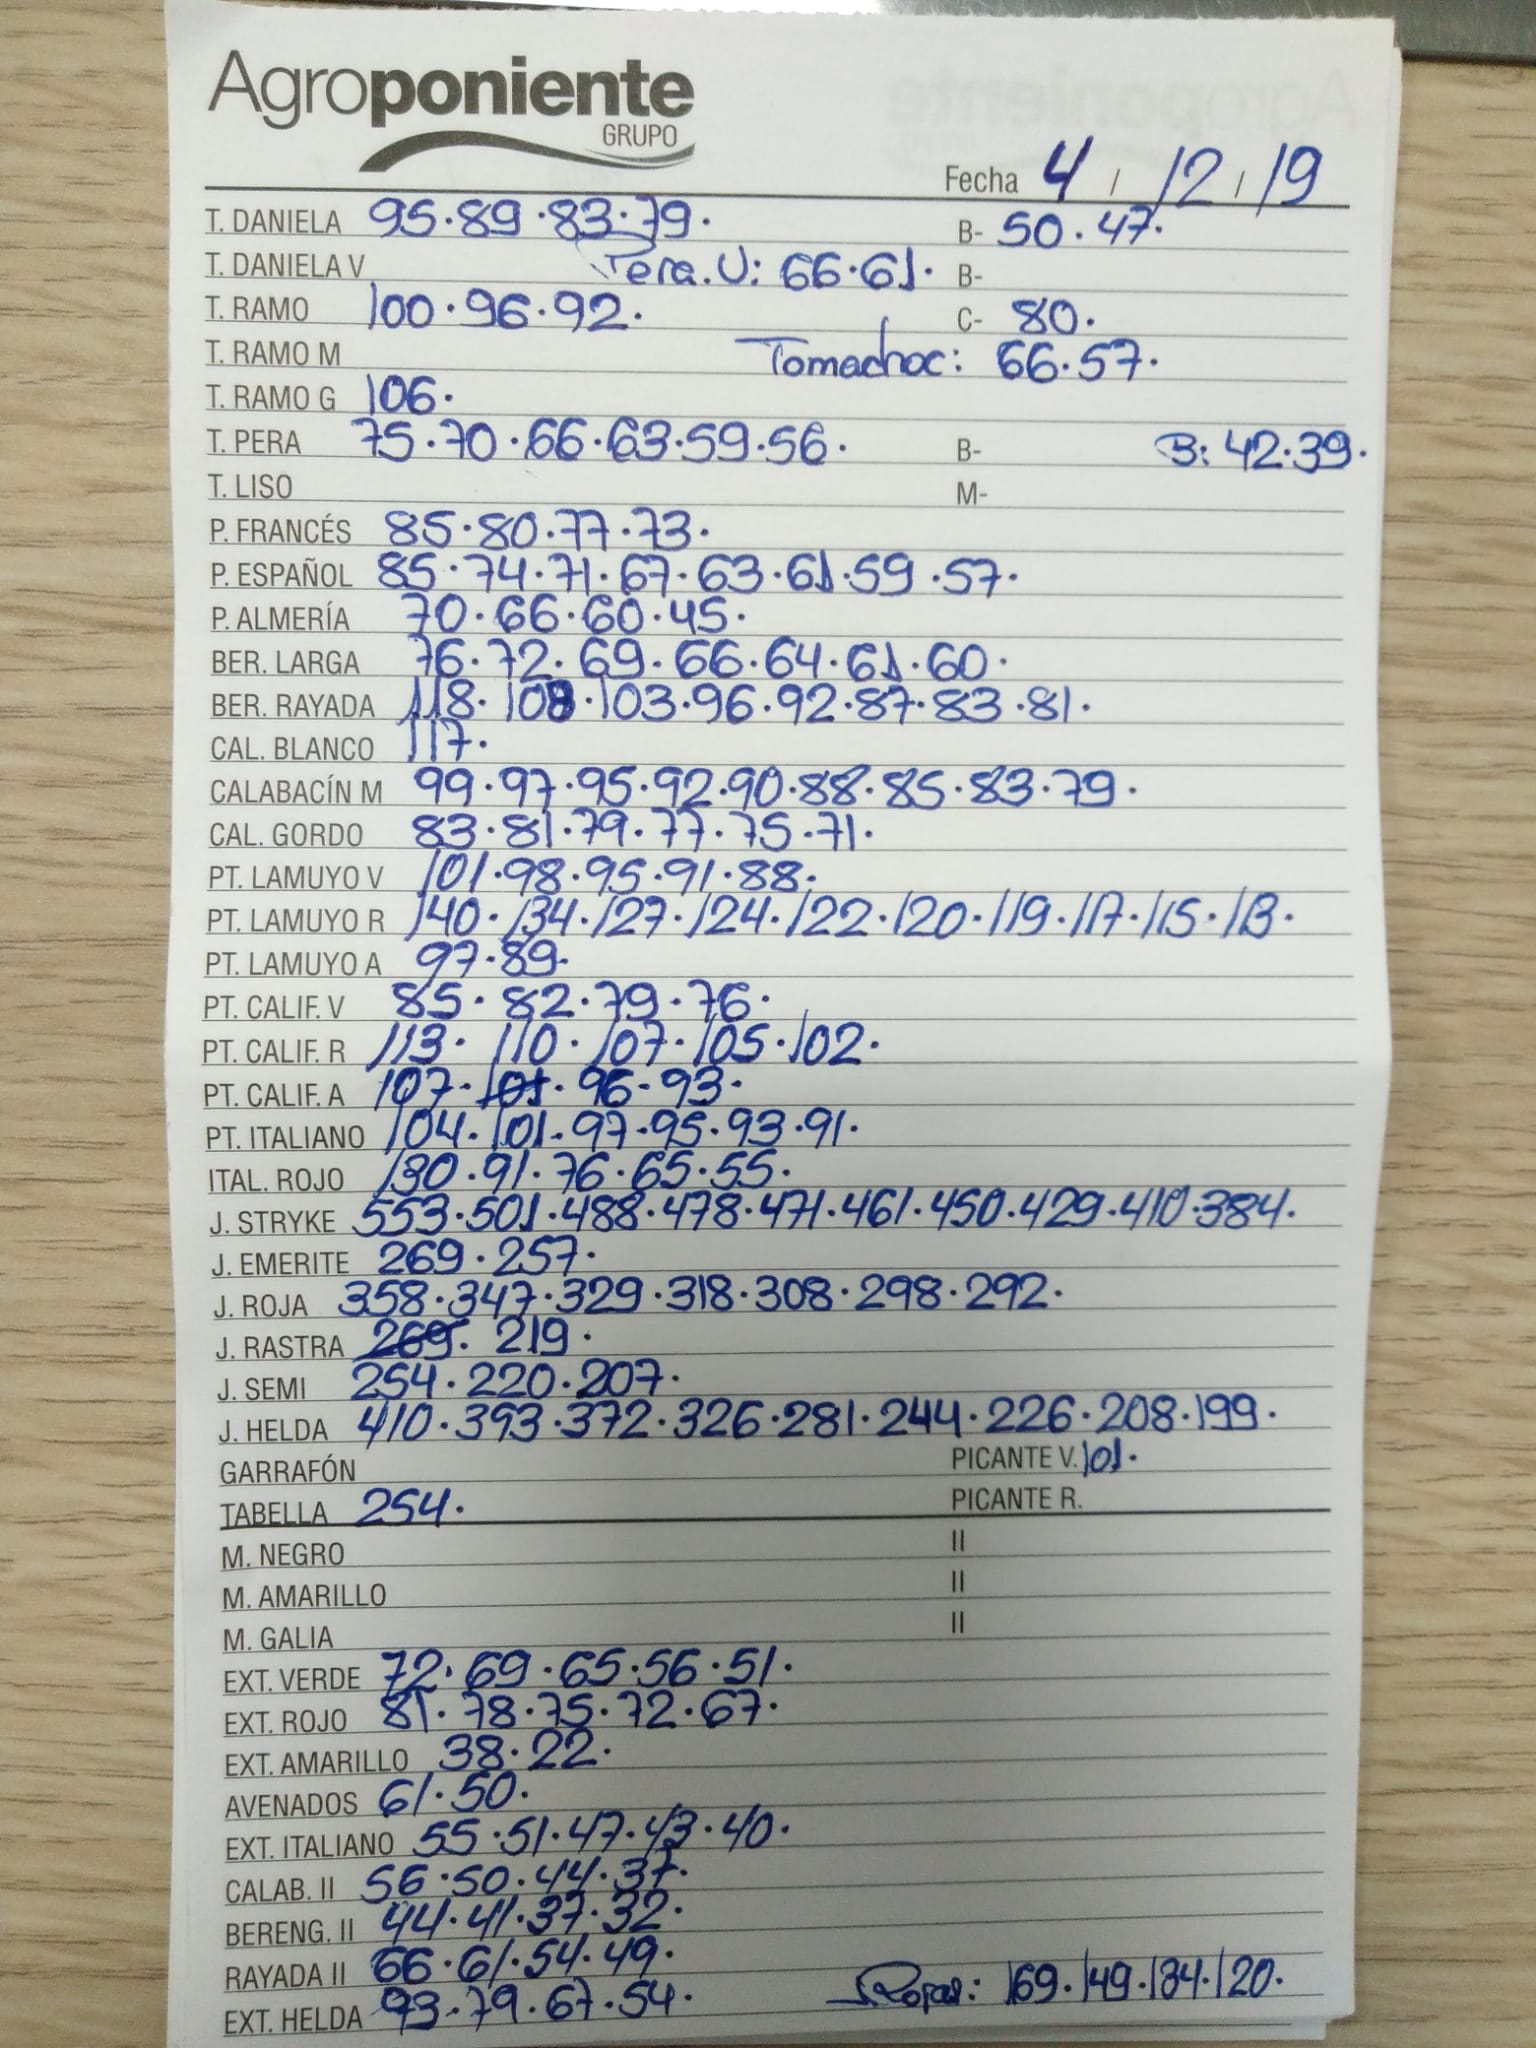 Agroponiente
GRUPO
Fecha 4 / 12 / 19
T. DANIELA 95·89·83·79. B- 50·47.
T. DANIELA V Pera.V: 66·61. B-
T. RAMO 100·96·92. C- 80.
T. RAMO M Tomachoc: 66·57.
T. RAMO G 106.
T. PERA 75·70·66·63·59·56. B- B: 42·39.
T. LISO M-
P. FRANCÉS 85·80·77·73.
P. ESPAÑOL 85·74·71·67·63·61·59·57.
P. ALMERÍA 70·66·60·45.
BER. LARGA 76·72·69·66·64·61·60.
BER. RAYADA 118·108·103·96·92·87·83·81.
CAL. BLANCO 117.
CALABACÍN M 99·97·95·92·90·88·85·83·79.
CAL. GORDO 83·81·79·77·75·71.
PT. LAMUYO V 101·98·95·91·88.
PT. LAMUYO R 140·134·127·124·122·120·119·117·115·113.
PT. LAMUYO A 97·89.
PT. CALIF. V 85·82·79·76.
PT. CALIF. R 113·110·107·105·102.
PT. CALIF. A 107·101·96·93.
PT. ITALIANO 104·101·97·95·93·91.
ITAL. ROJO 130·91·76·65·55.
J. STRYKE 553·501·488·478·471·461·450·429·410·384.
J. EMERITE 269·257.
J. ROJA 358·347·329·318·308·298·292.
J. RASTRA 269· 219.
J. SEMI 254·220·207.
J. HELDA 410·393·372·326·281·244·226·208·199.
GARRAFÓN PICANTE V. 101.
TABELLA 254. PICANTE R.
M. NEGRO II
M. AMARILLO II
M. GALIA II
EXT. VERDE 72·69·65·56·51.
EXT. ROJO 81·78·75·72·67.
EXT. AMARILLO 38·22.
AVENADOS 61·50.
EXT. ITALIANO 55·51·47·43·40.
CALAB. II 56·50·44·37.
BERENG. II 44·41·37·32.
RAYADA II 66·61·54·49.
EXT. HELDA 93·79·67·54. 169·149·134·120.